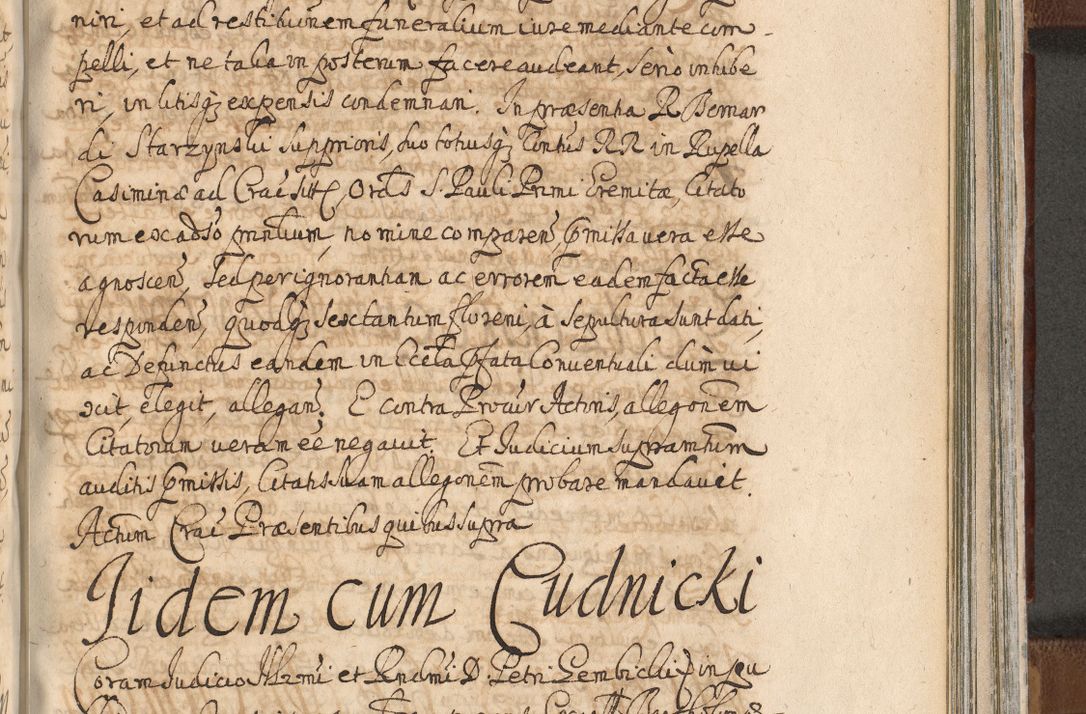 niri, et ad restitutionem funeralium iure mediante com-
pelli, et ne talia in posterum facere audeant, serio inhibe
ri, in litisq; expensis condemnari. In præsentia R. Bernar
di Starzynski Supprioris, suo totiusq; Contus RR in Rupella
Casimiriæ ad Crac̃ sitt, Ord̃s S. Pauli Primi Eremitæ, Citato
rum ex adso pñtium, nomine comparen̄ pmissa vera esse
agnoscen̄, sed per ignorantiam ac errorem eadem facta esse
responden̄, quodq; sex tantum floreni, à sepultura sunt dati,
ac Defunctus eandem in Eccla pfata Conventuali dum vi
xit, elegit, allegan̄. E contra Procur Actoris, allegonem
Citatorum veram eē negavit. Et Judicium supramtum
auditis pmissis, Citatis suam allegonem probare mandavit.
Actum Crac̃ Præsentibus quibus supra
Iidem cum Cudnicki
Coram Judicio Illmi et Rndmi D. Petri Gembicki) in qu